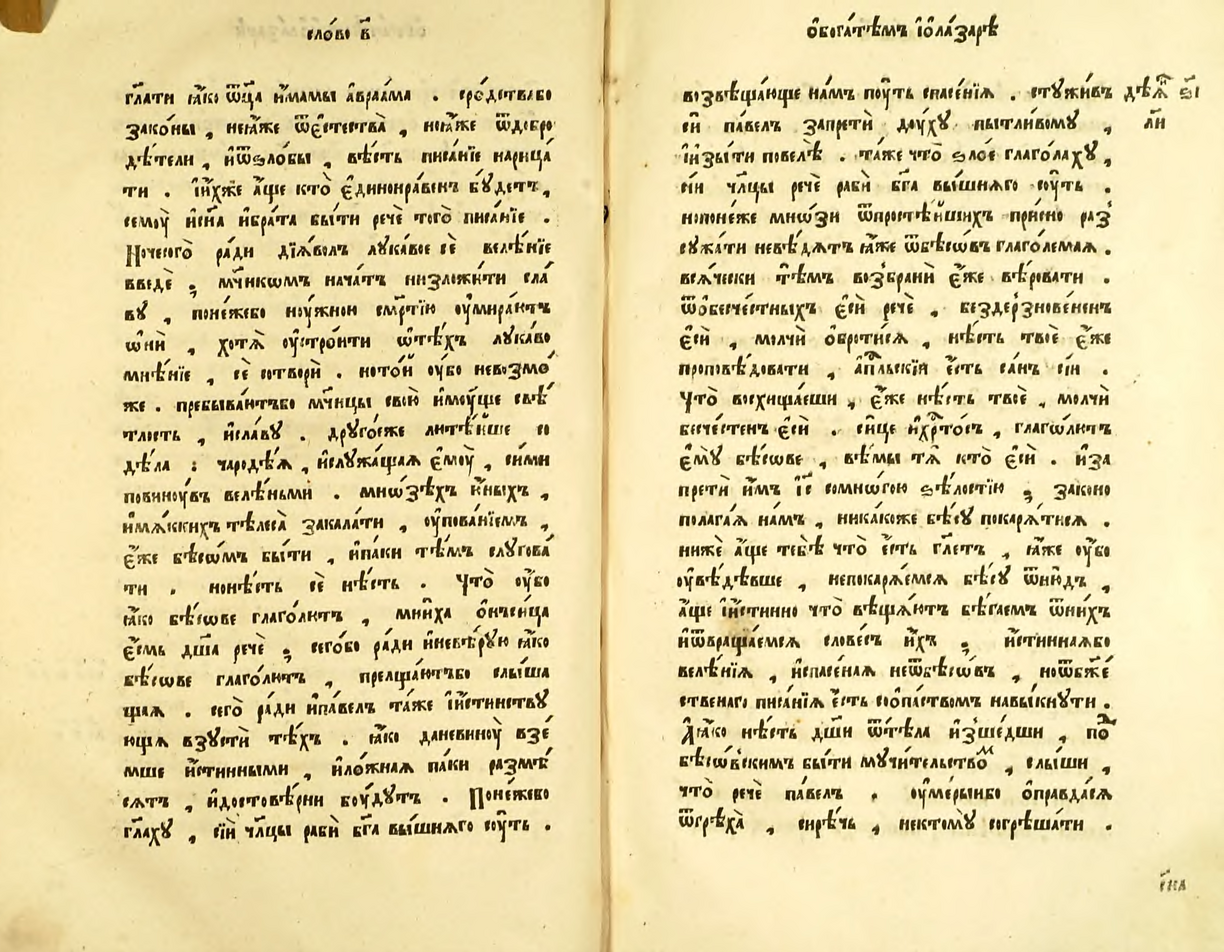 сло́во в҃
гл҃ати ꙗ҆́ко ѿц҃а и҆́мамы а҆враа́ма . сро́дствабо
зако́ны , неꙗ҆́же ѿе҆стества̀ , ноꙗ҆́же ѿдобро
дѣ́тели , и҆ѿѕло́бы , вѣ́сть писа́нїе нарица́
ти . и҆̀хже а҆́ще кто̀ е҆диноnра́венъ бꙋ́детъ ,
семоу̀ и҆сн҃а и҆бра́та бы́ти речѐ того̀ писа́нїе .
Ночесого̀ ра́ди дїа́волъ лꙋка́вое сѐ велѣ́нїе
введѐ ; мч҃никѡмъ нача́тъ низложи́ти сла́
вꙋ , поне́жебо ноу́жною сме́ртїю оу҆мира́ютъ
ѡ҆нѝ , хотѧ̀ оу҆стро́ити ѿтѣ́хъ лꙋка́во
мнѣ́нїе , сѐ сотворѝ . ното́и оу҆́бо невозмо́
же . пребыва́ютъбо мч҃ицы свою̀ и҆мꙋ́ще свѣ́
тлость , и҆сла́вꙋ . дрꙋго́еже лютѣ́йше со
дѣ́ла : чародѣ́ѧ , и҆слꙋжа́щаѧ е҆моу̀ , си́ми
повинꙋ́въ велѣ́ньми . мнѡ́зѣхъ и҆́ныхъ ,
и҆мѧ́сскихъ тѣлеса̀ закала́ти , оу҆пова́нїемъ ,
е҆́же бѣ́сѡмъ бы́ти , и҆па́ки тѣ́мъ слꙋгова́
ти . нонѣ́сть сѐ нѣ́сть . Что̀ оу҆́бо
ꙗ҆́ко бѣ́сове глаго́лютъ , мни́ха о҆нсеи́ца
е҆́смь дш҃а речѐ ; сего́бо ра́ди и҆невѣ́рꙋю ꙗ҆́ко
бѣ́сове глаго́лютъ , прелща́ютъбо слы́ша
щаѧ . сего̀ ра́ди и҆па́велъ та́же и҆́истинствꙋ
ющѧ взꙋстѝ тѣ́хъ . ꙗ҆́ко даневинꙋ̀ взе́
мше и҆́стинными , и҆ло́жнаѧ па́ки размѣ́
сѧтъ , и҆достовѣ́рни боу́дꙋтъ . Поне́жебо
гл҃ахꙋ , сі́и чл҃цы рабѝ бг҃а вы́шнѧго соу́ть .
о҆бога́тѣмъ і҆ола́зарѣ
возвѣща́юще на́мъ поу́ть спасе́нїѧ . стꙋжи́въ
дѣѧ҃ ѕі
си̑ па́велъ запретѝ дꙋ́хꙋ пытли́вомꙋ ,
и҆зы́ти повелѣ̀ . та́же что̀ ѕло́е глаго́лахꙋ ,
сі́и чл҃цы речѐ рабѝ бг҃а вы́шнѧго соу́ть .
нопоне́же мно́зи ѿпростѣ́йшихъ при́сно раз̾
сꙋжа́ти невѣ́дѧтъ ꙗ҆́же ѿбѣ́совъ глаго́лемаѧ .
всѧ́чески тѣ́мъ возбранѝ е҆́же вѣ́ровати .
ѿо҆бесче́стныхъ е҆сѝ речѐ , бездерзнове́ненъ
е҆сѝ , молчѝ о҆брати́сѧ , нѣ́сть твоѐ е҆́же
проповѣ́довати , а҆пⷭ҇льскїй е҆́сть са́нъ сі́и .
Что̀ восхища́еши , е҆́же нѣ́сть твоѐ , молчѝ
бесче́стенъ е҆сѝ . си́це и҆хрⷭ҇то́съ , глаго́лютъ
е҆мꙋ̀ бѣ́сове , вѣ́мы тѧ̀ кто̀ е҆сѝ . и҆за
претѝ и҆̀мъ і҆с҃ сомно́гою ѕѣ́лостїю ; зако́но
полага́ѧ на́мъ , ника́коже бѣ́сꙋ покарѧ́тисѧ .
нижѐ а҆́ще тебѣ̀ что̀ е҆́сть гл҃етъ , ꙗ҆́же оу҆́бо
оу҆вѣ́дѣвше , непокарѧ́емсѧ бѣ́сꙋ ѿню́дъ ,
а҆́ще и҆и́стинно что̀ вѣща́ютъ бѣ́гаемъ ѿни́хъ
и҆ѿвраща́емсѧ слове́съ и҆́хъ ; и҆́стиннаѧбо
велѣ́нїѧ , и҆спасе́наѧ неѿбѣ́совъ , ноѿбж҃е́
ственаго писа́нїѧ е҆́сть соо҆па́ствомъ навы́кнꙋти .
Аꙗ҆́ко нѣ́сть дш҃и ѿтѣ́ла и҆зше́дши , по
бѣсо́вскимъ бы́ти мꙋчи́тельствоⷨ , слы́ши ,
что̀ речѐ па́велъ . оу҆ме́рыибо о҆правда́сѧ
ѿгрѣха̀ , си́рѣчь , нектомꙋ̀ согрѣша́ти .